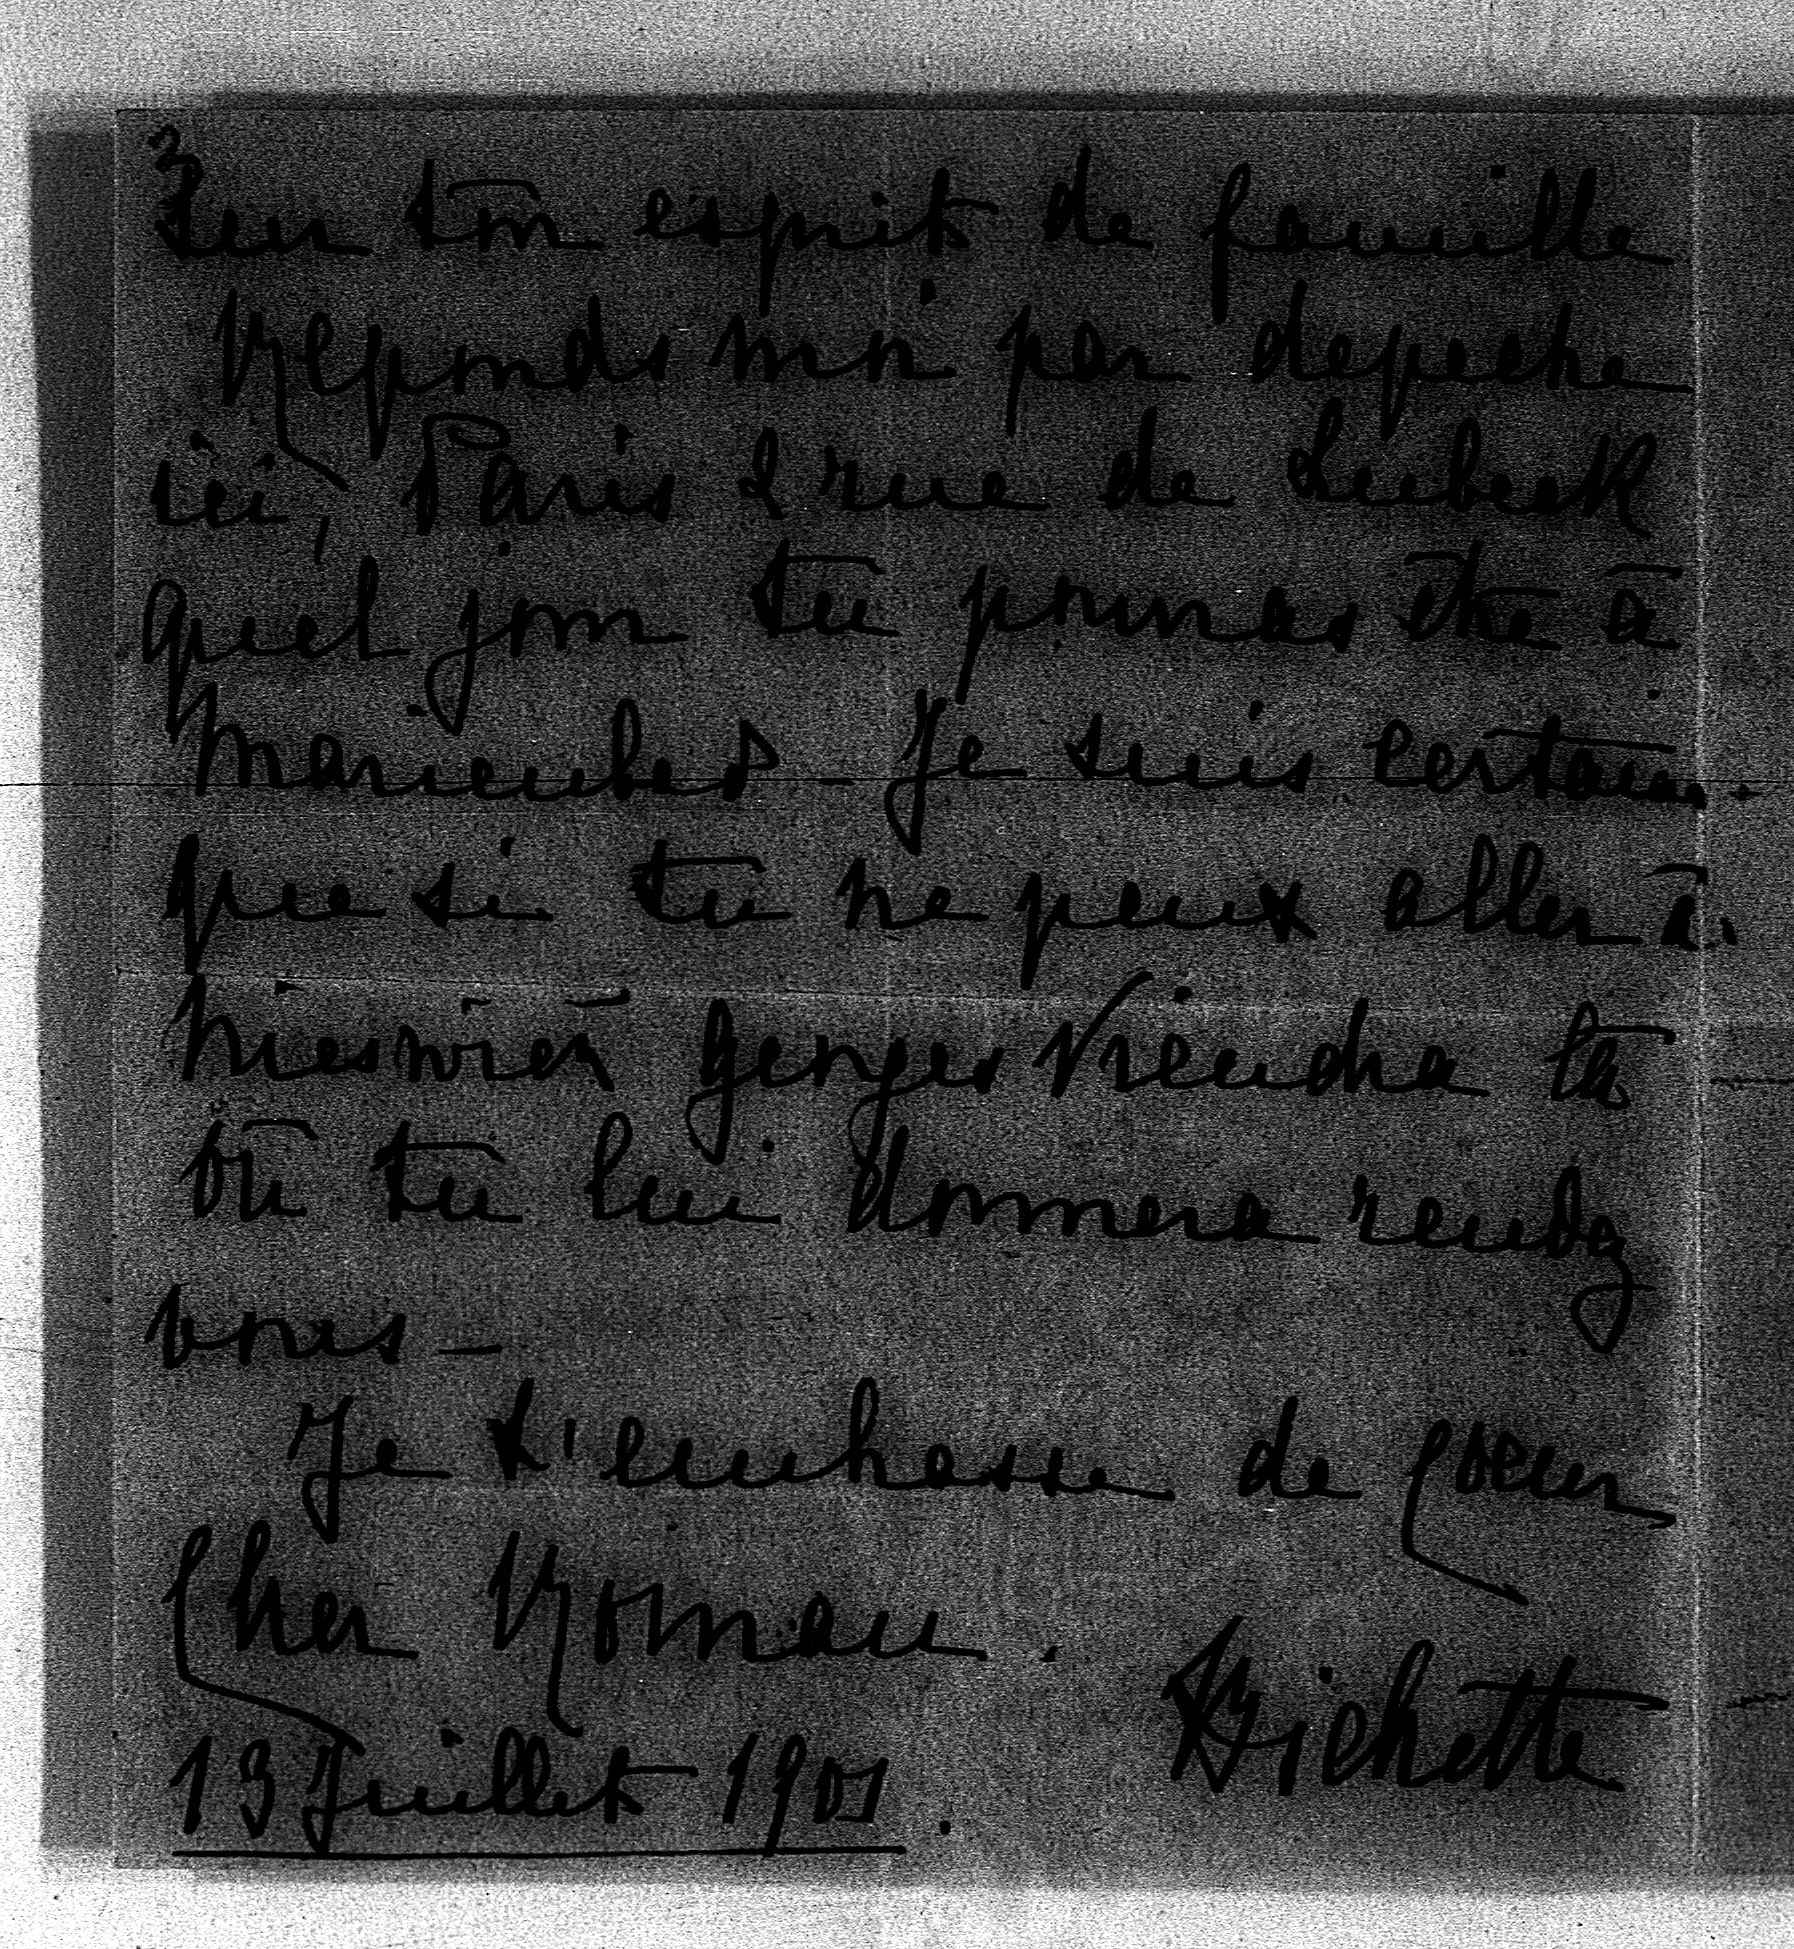 Sur ton esprit de famille
Reponds moi par depeche
ici, Paris 2 rue de Lubeck
quel jour tu pourras être à
Marienbad - Je suis certain
que si tu ne peux aller à
Nieswież Georges viendra là
où tu lui donnera rendez
vous -
Je t'embrasse de coeur
Cher Roman.
Bichette
13 Juillet 1901.